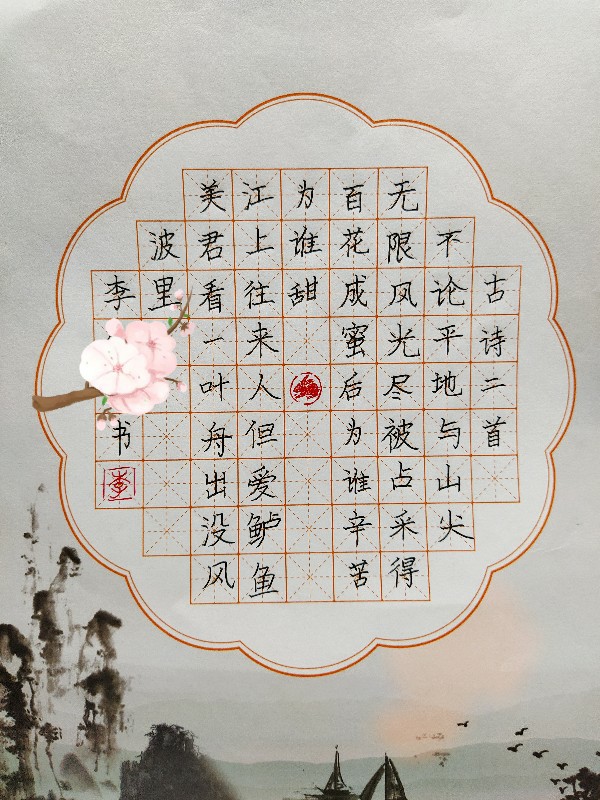 古诗二首
不论平地与山尖
无限风光尽被占采得
百花成蜜后为谁辛苦
为谁甜
江上往来人但爱鲈鱼
美君看一叶舟出没风
波里
李
书
李